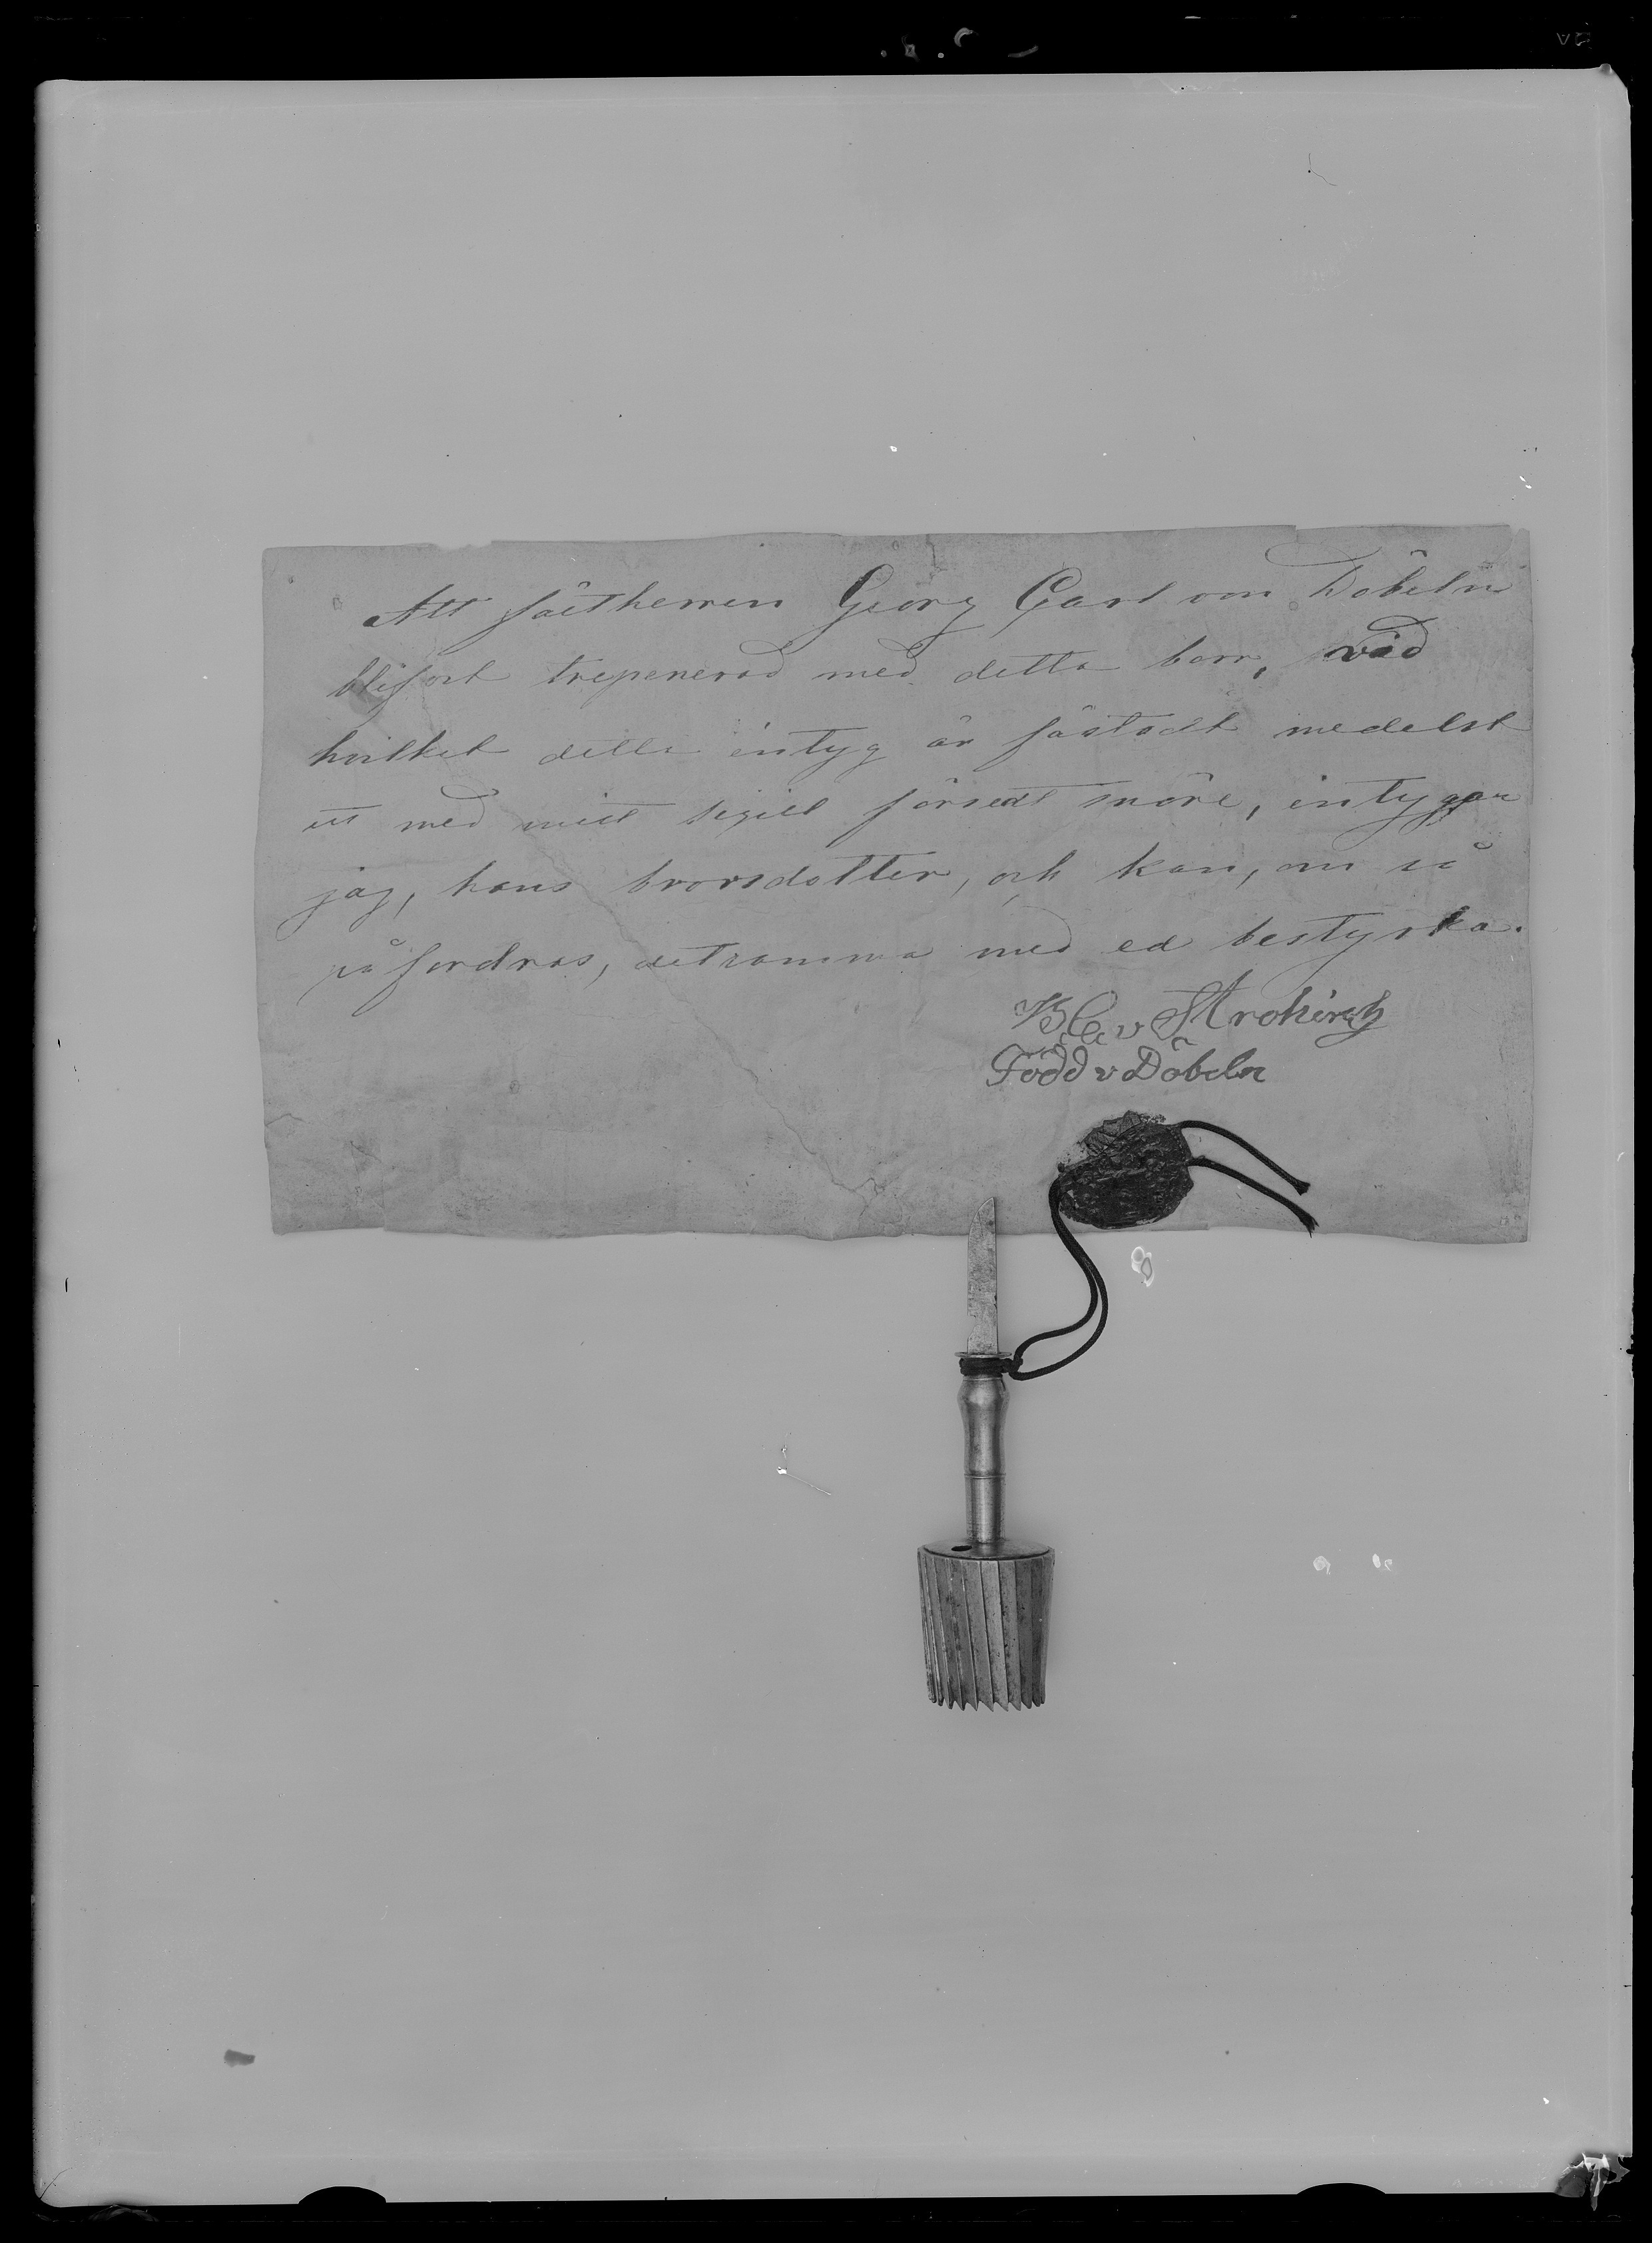 Att fältherren Georg Carl von Döbeln
blifvit trepenerad med detta borr, vid
hvilket detta intyg är fästadt medelst
ett med mitt sigill försedt snöre, intygar
jag, hans brorsdotter, och kan, om så
påfordras, detsamma med ed bestyrka.
v Strokirch
Född v Döbeln